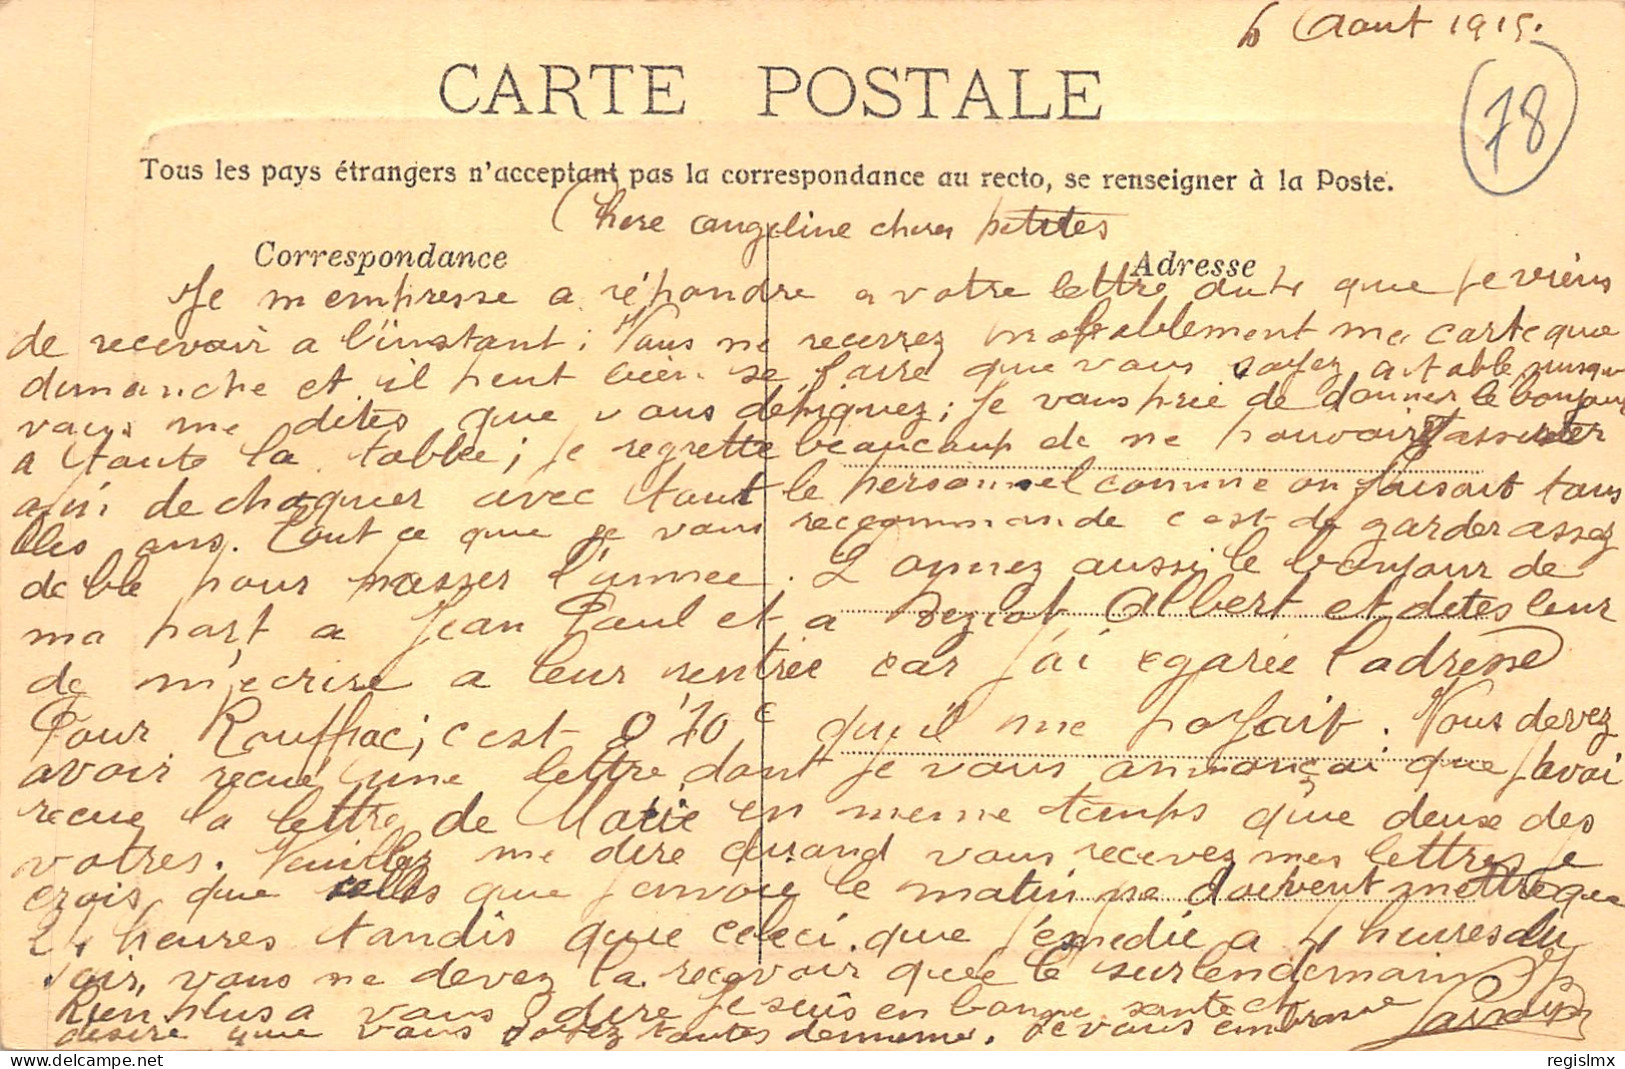 6 Aout 1915.
CARTE POSTALE
78
Tous les pays étrangers n'acceptant pas la correspondance au recto, se renseigner à la Poste.
Chere angeline cheres petites
Correspondance
Adresse
Je m'empresse a répondre a votre lettre du 4 que je viens
de recevoir a l'instant ; Vous ne recevrez probablement ma carte que
dimanche et il peut bien se faire que vous soyez a table puisque
vous me dites que vous dépiquez ; je vous prie de donner le bonjour
a toute la tablee ; je regrette beaucoup de ne pouvoir assister
de choquer avec tout le personnel comme on faisait tous
lles ans. Tout ce que je vous recommande c est de garder assez
de blé pour passer l'annee. Donnez aussi le bonjour de
ma part a Jean Paul et a Albert et dites leur
de m'ecrire a leur rentrée car j'ai egarée l'adresse
Pour Rouffiac ; c est 0'70 c qu'il me fosait. Vous devez
avoir recue une lettre dont je vous annonçai que j'avai
recue la lettre de Marie en meme temps que deux des
votres. Veuillez me dire quand vous recevez mes lettres je
crois que celles que j'envoie le matin ne doivent mettre que
24 heures tandis que celeci que j'expedie a 4 heures du
soir, vous ne devez la recevoir que le surlendemain
Rien plus a vous dire Je suis en bonne sante et
desire que vous soyez toutes de meme. Je vous embrasse
regislmx